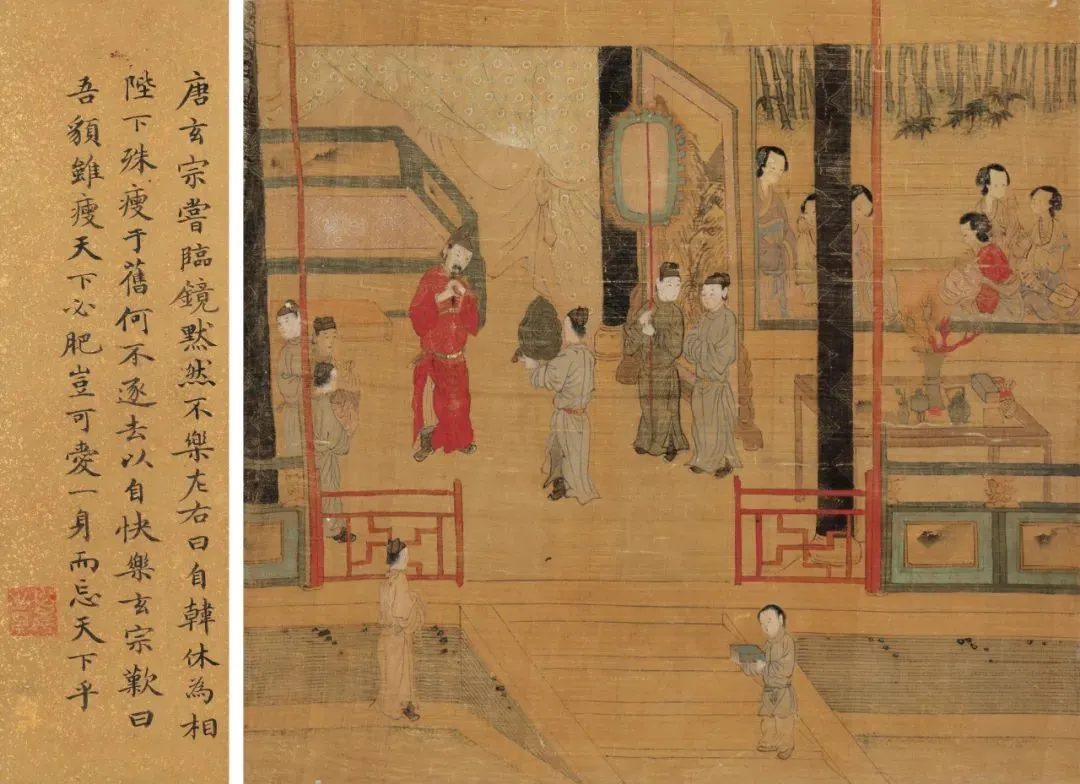 唐玄宗嘗臨鏡默然不樂左右曰自韓休為相
陛下殊瘦于舊何不逐去以自快樂玄宗歎曰
吾貌雖瘦天下必肥豈可愛一身而忘天下乎